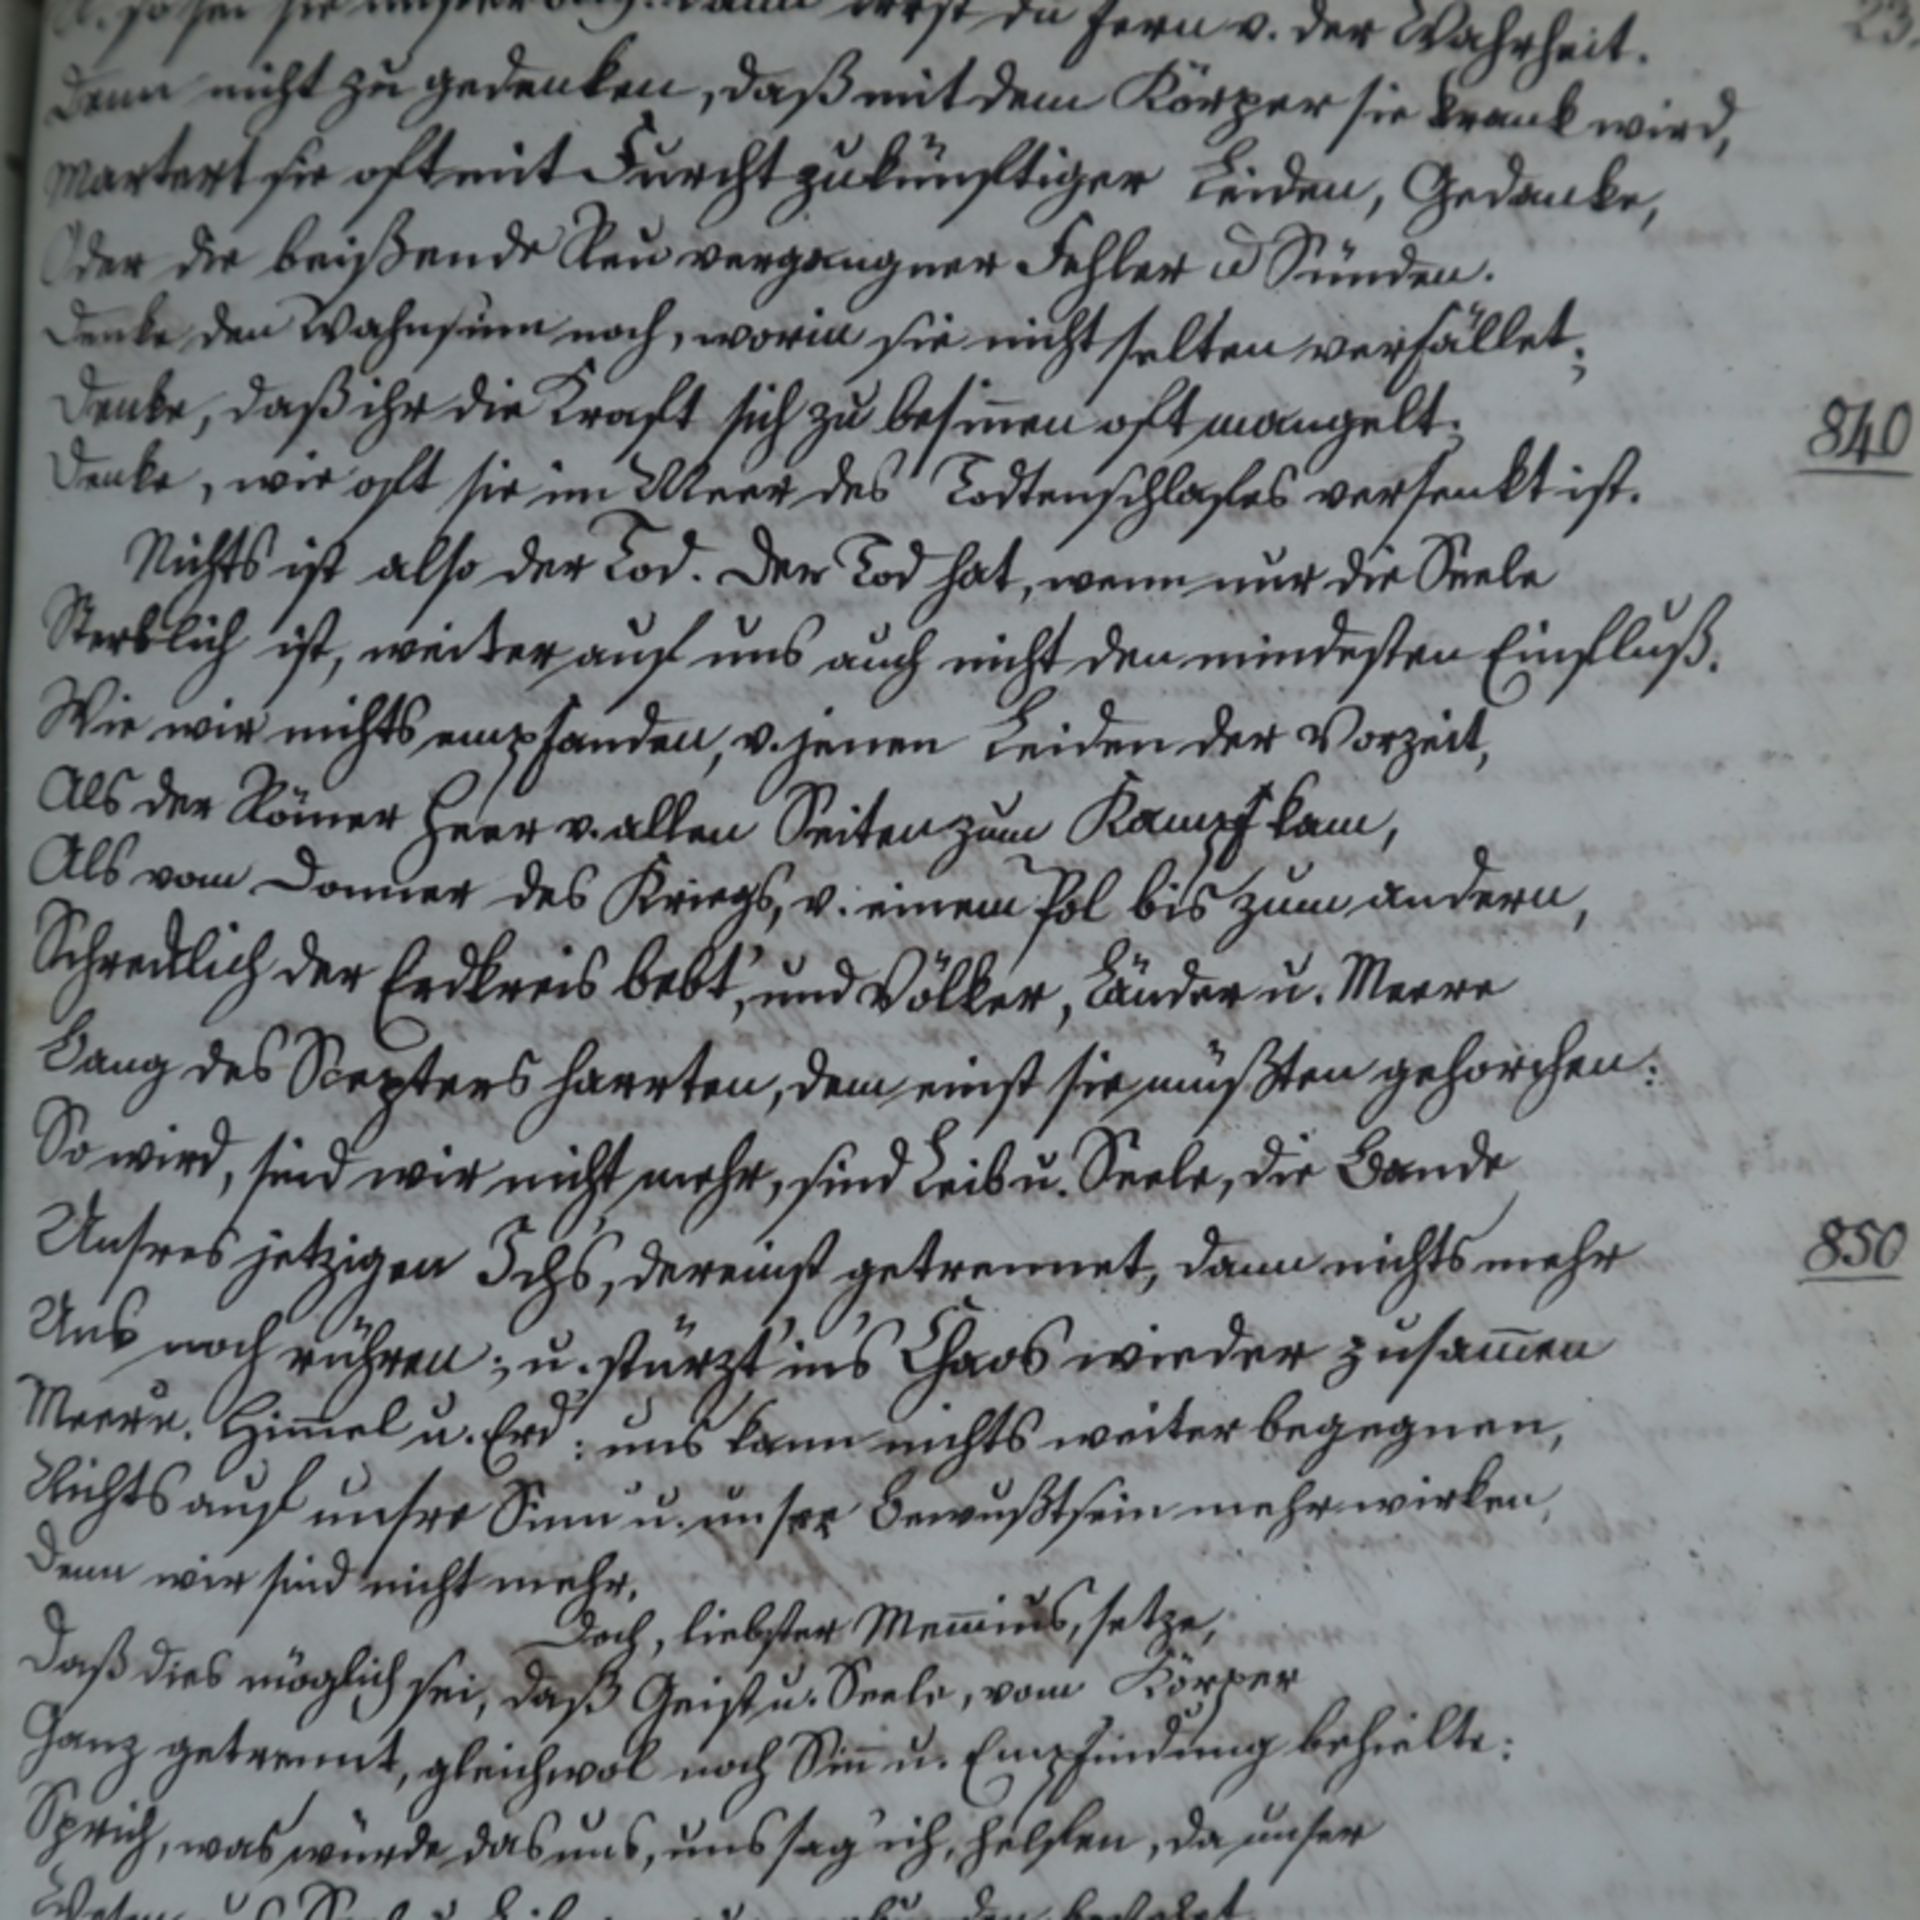 so sei sie unsterblich: dann irrst du fern v. der Wahrheit.
23.
Denn nicht zu gedenken, daß mit dem Körper sie krank wird,
Martert sie oft mit Furcht zukünftiger Leiden, Gedanke,
Oder die beißende Reu vergangner Fehler u Sünden.
Denke den Wahnsinn noch, worin sie nicht selten verfället;
Denke, daß ihr die Kraft sich zu besin̄en oft mangelt;
840
Denke, wie oft sie im Meer des Todtenschlafes versenkt ist.
Nichts ist also der Tod. Der Tod hat, wenn nur die Seele
Sterblich ist, weiter auf uns auch nicht den mindesten Einfluß.
Wie wir nichts empfanden, v. jenen Leiden der Vorzeit,
Als der Römer Heer v. allen Seiten zum Kampf kam,
Als vom Donner des Kriegs, v. einem Pol bis zum andern,
Schrecklich der Erdkreis bebt', und Völker, Länder u. Meere
Bang des Scepters harrten, dem einst sie müßten gehorchen:
So wird, sind wir nicht mehr, sind Leib u. Seele, die Bande
Unsres jetzigen Ichs, dereinst getrennet, dann nichts mehr
850
Uns noch rühren; u. stürzt' ins Chaos wieder zusam̄en
Meer u. Him̄el u. Erd': uns kann nichts weiter begegnen,
Nichts auf unsre Sinn u. unser Bewußtsein mehr wirken,
Denn wir sind nicht mehr.
Doch, liebster Mem̄ius, setze,
Daß dies möglich sei, daß Geist u. Seele, vom Körper
Ganz getrennt, gleichwol noch Sin̄ u. Empfindung behielte:
Sprich, was würde das uns, uns sag' ich, helfen, da unser